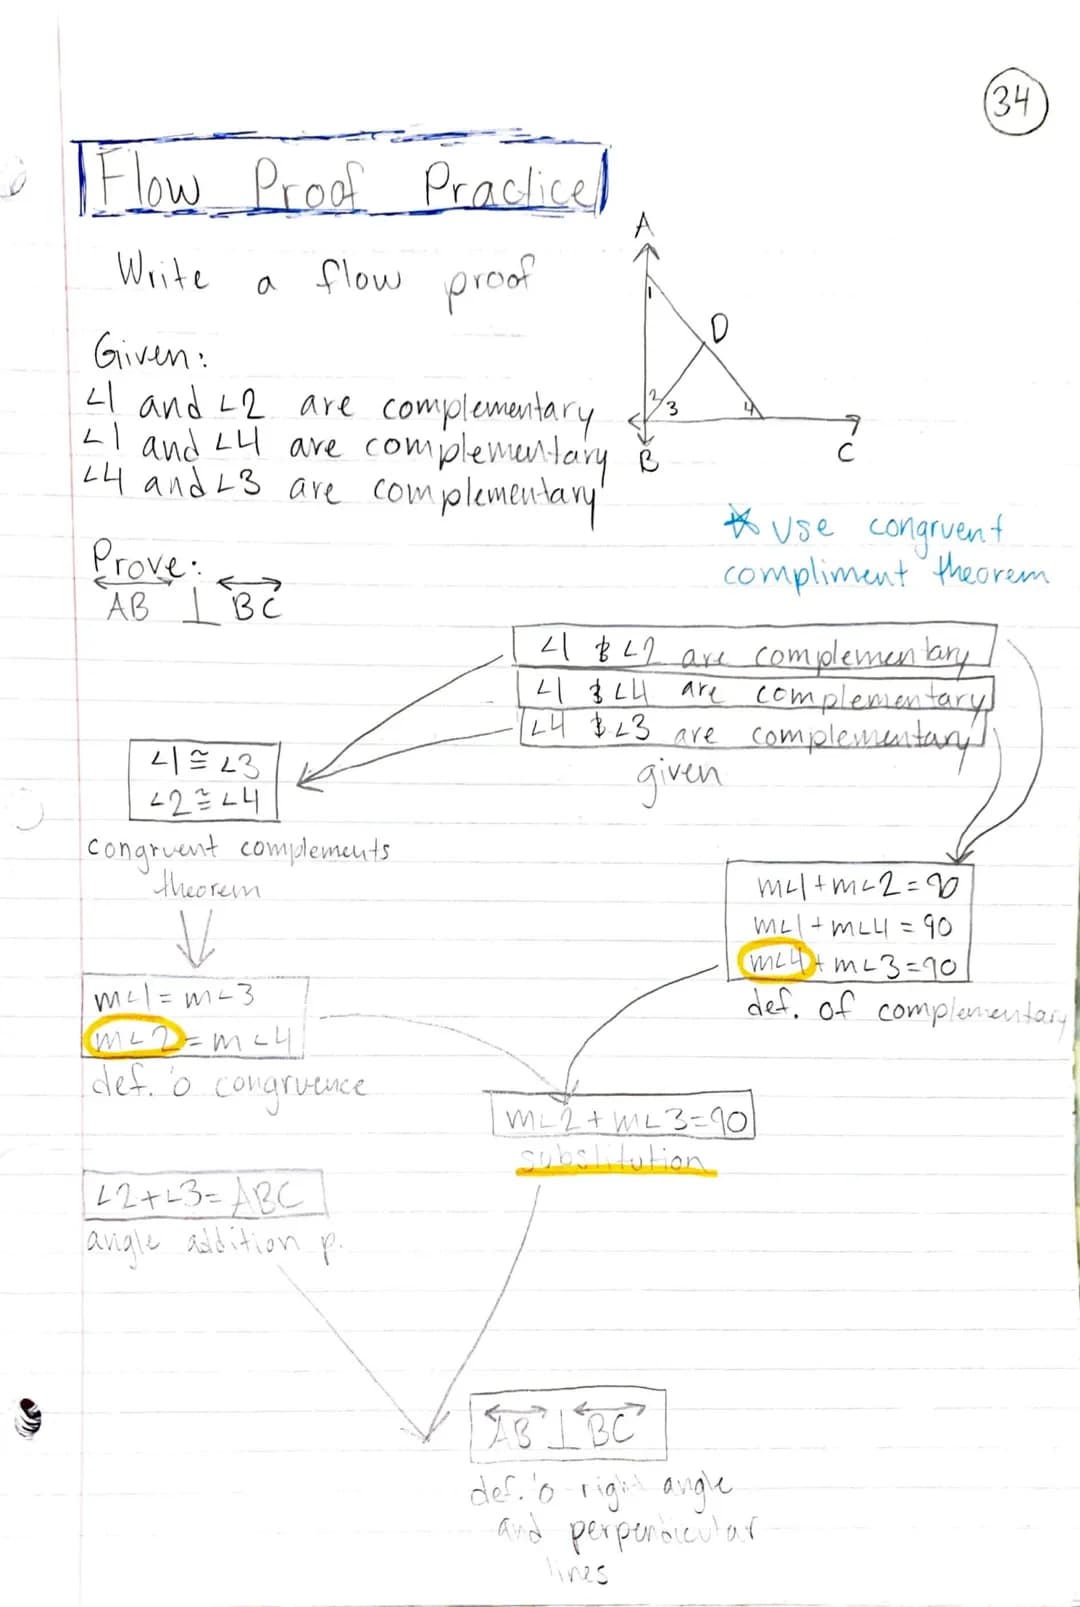 34
Flow Proof Practice
Write a flow proof
A
1
D
2
3
4
B
C
Given:
∠1 and ∠2 are complementary
∠1 and ∠4 are complementary
∠4 and ∠3 are complementary
* Use congruent
compliment theorem
Prove:
AB ⊥ BC
∠1 & ∠2 are complementary
∠1 & ∠4 are complementary
∠4 & ∠3 are complementary
given
∠1 ≅ ∠3
∠2 ≅ ∠4
congruent complements
theorem
m∠1+m∠2=90
m∠1+m∠4=90
m∠4+m∠3=90
def. of complementary
m∠1=m∠3
m∠2=m∠4
def. 'o congruence
m∠2+m∠3=90
substitution
∠2+∠3=ABC
angle addition p.
AB ⊥ BC
def. 'o right angle
and perpendicular
lines